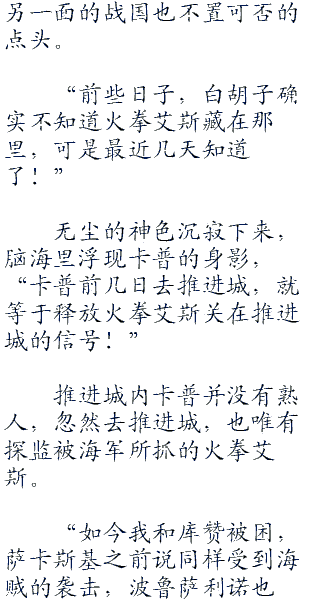 另一面的战国也不置可否的
点头。
“前些日子，白胡子确
实不知道火拳艾斯藏在那
里，可是最近几天知道
了！”
无尘的神色沉寂下来，
脑海里浮现卡普的身影，
“卡普前几日去推进城，就
等于释放火拳艾斯关在推进
城的信号！”
推进城内卡普并没有熟
人，忽然去推进城，也唯有
探监被海军所抓的火拳艾
斯。
“如今我和库赞被困，
萨卡斯基之前说同样受到海
贼的袭击，波鲁萨利诺也